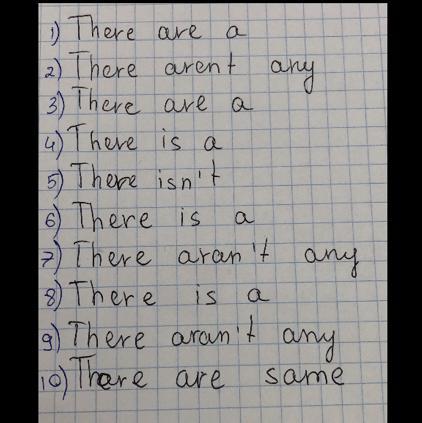 1) There are a
2) There arent any
3) There are a
4) There is a
5) There isn't
6) There is a
7) There aran't any
8) There is a
9) There aran't any
10) There are same